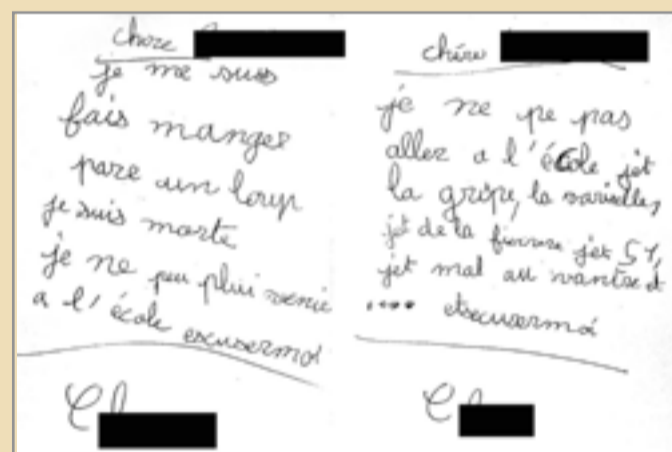 chere
je me suis
fais manger
pare un loup
je suis morte
je ne peu plui venir
a l'école escusermoi
chére
je ne pe pas
allez a l'école jet
la gripe, la varielle,
jet de la fievre jet 51,
jet mal au vantre et
.... etscusermoi